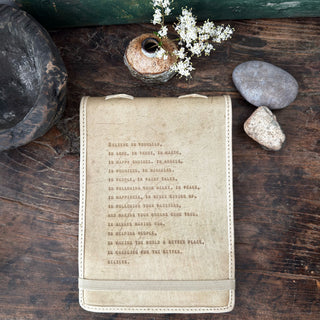 Believe in yourself,
in love, in trust, in magic,
in happy endings, in angels,
in yourself, in miracles,
in people, in fairy tales,
in following your heart, in peace,
in happiness, in never giving up,
in following your passions,
and making your dreams come true,
in always having fun,
in helping people,
in making the world a better place,
in changing for the better.
Believe.